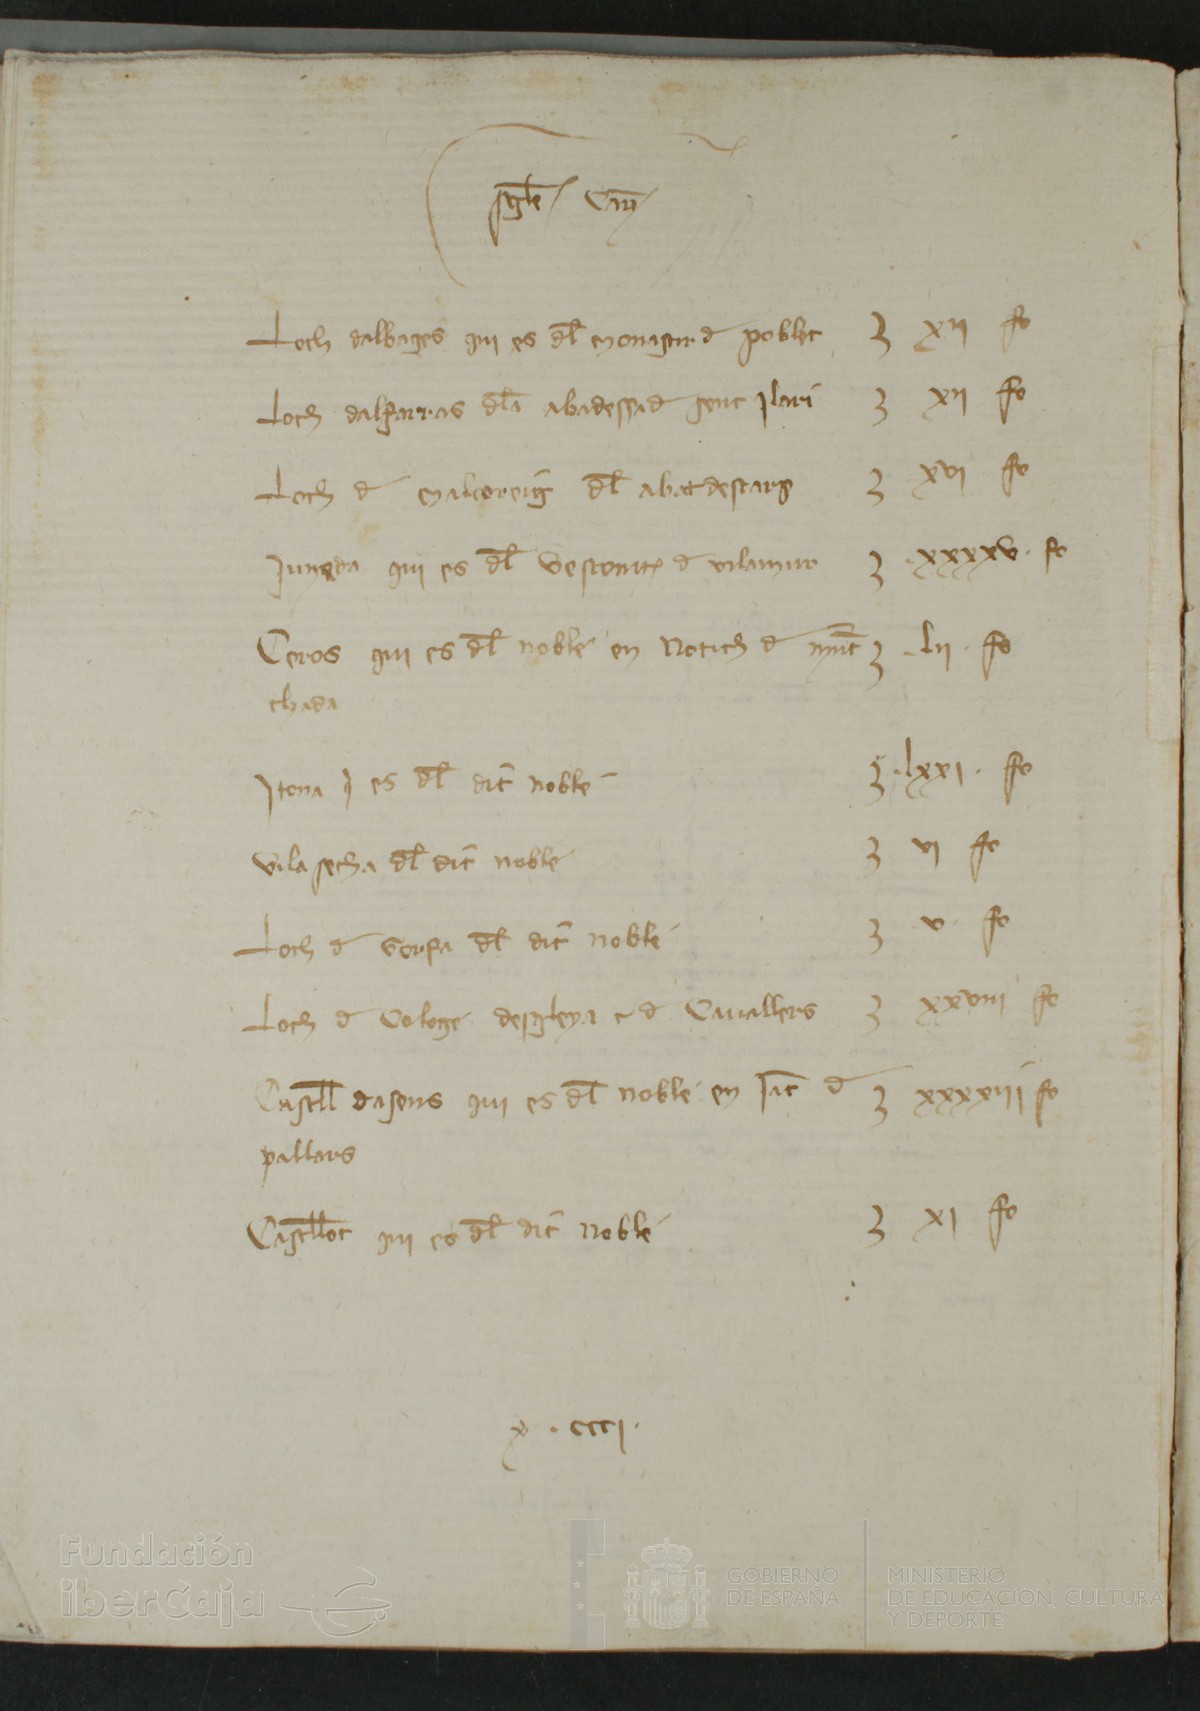 Loch dalbages qui es dl monastir d poblet Ʒ xii fo
Loch dalfarras dla abadessa d sent ylari Ʒ xii fo
Loch d malcoreig dl abat descarp Ʒ xvi fo
Juneda qui es dl vescomte d vilamur Ʒ .xxxxv. fo
Ceros qui es dl noble en Not d Ʒ .lii. fo
chada
Itona q es dl dit noble Ʒ .lxxi. fo
Vila secha dl dit noble Ʒ vi fo
Loch d Gorfa dl dit noble Ʒ v fo
Loch d Cologe desgleya e d Cavallers Ʒ xxviii fo
Castll dasens qui es dl noble en Jac d Ʒ xxxxiii fo
pallars
Castllot qui es dl dit noble Ʒ xi fo
x . ccci .
Fundación
iberCaja
GOBIERNO
DE ESPAÑA
MINISTERIO
DE EDUCACIÓN, CULTURA
Y DEPORTE